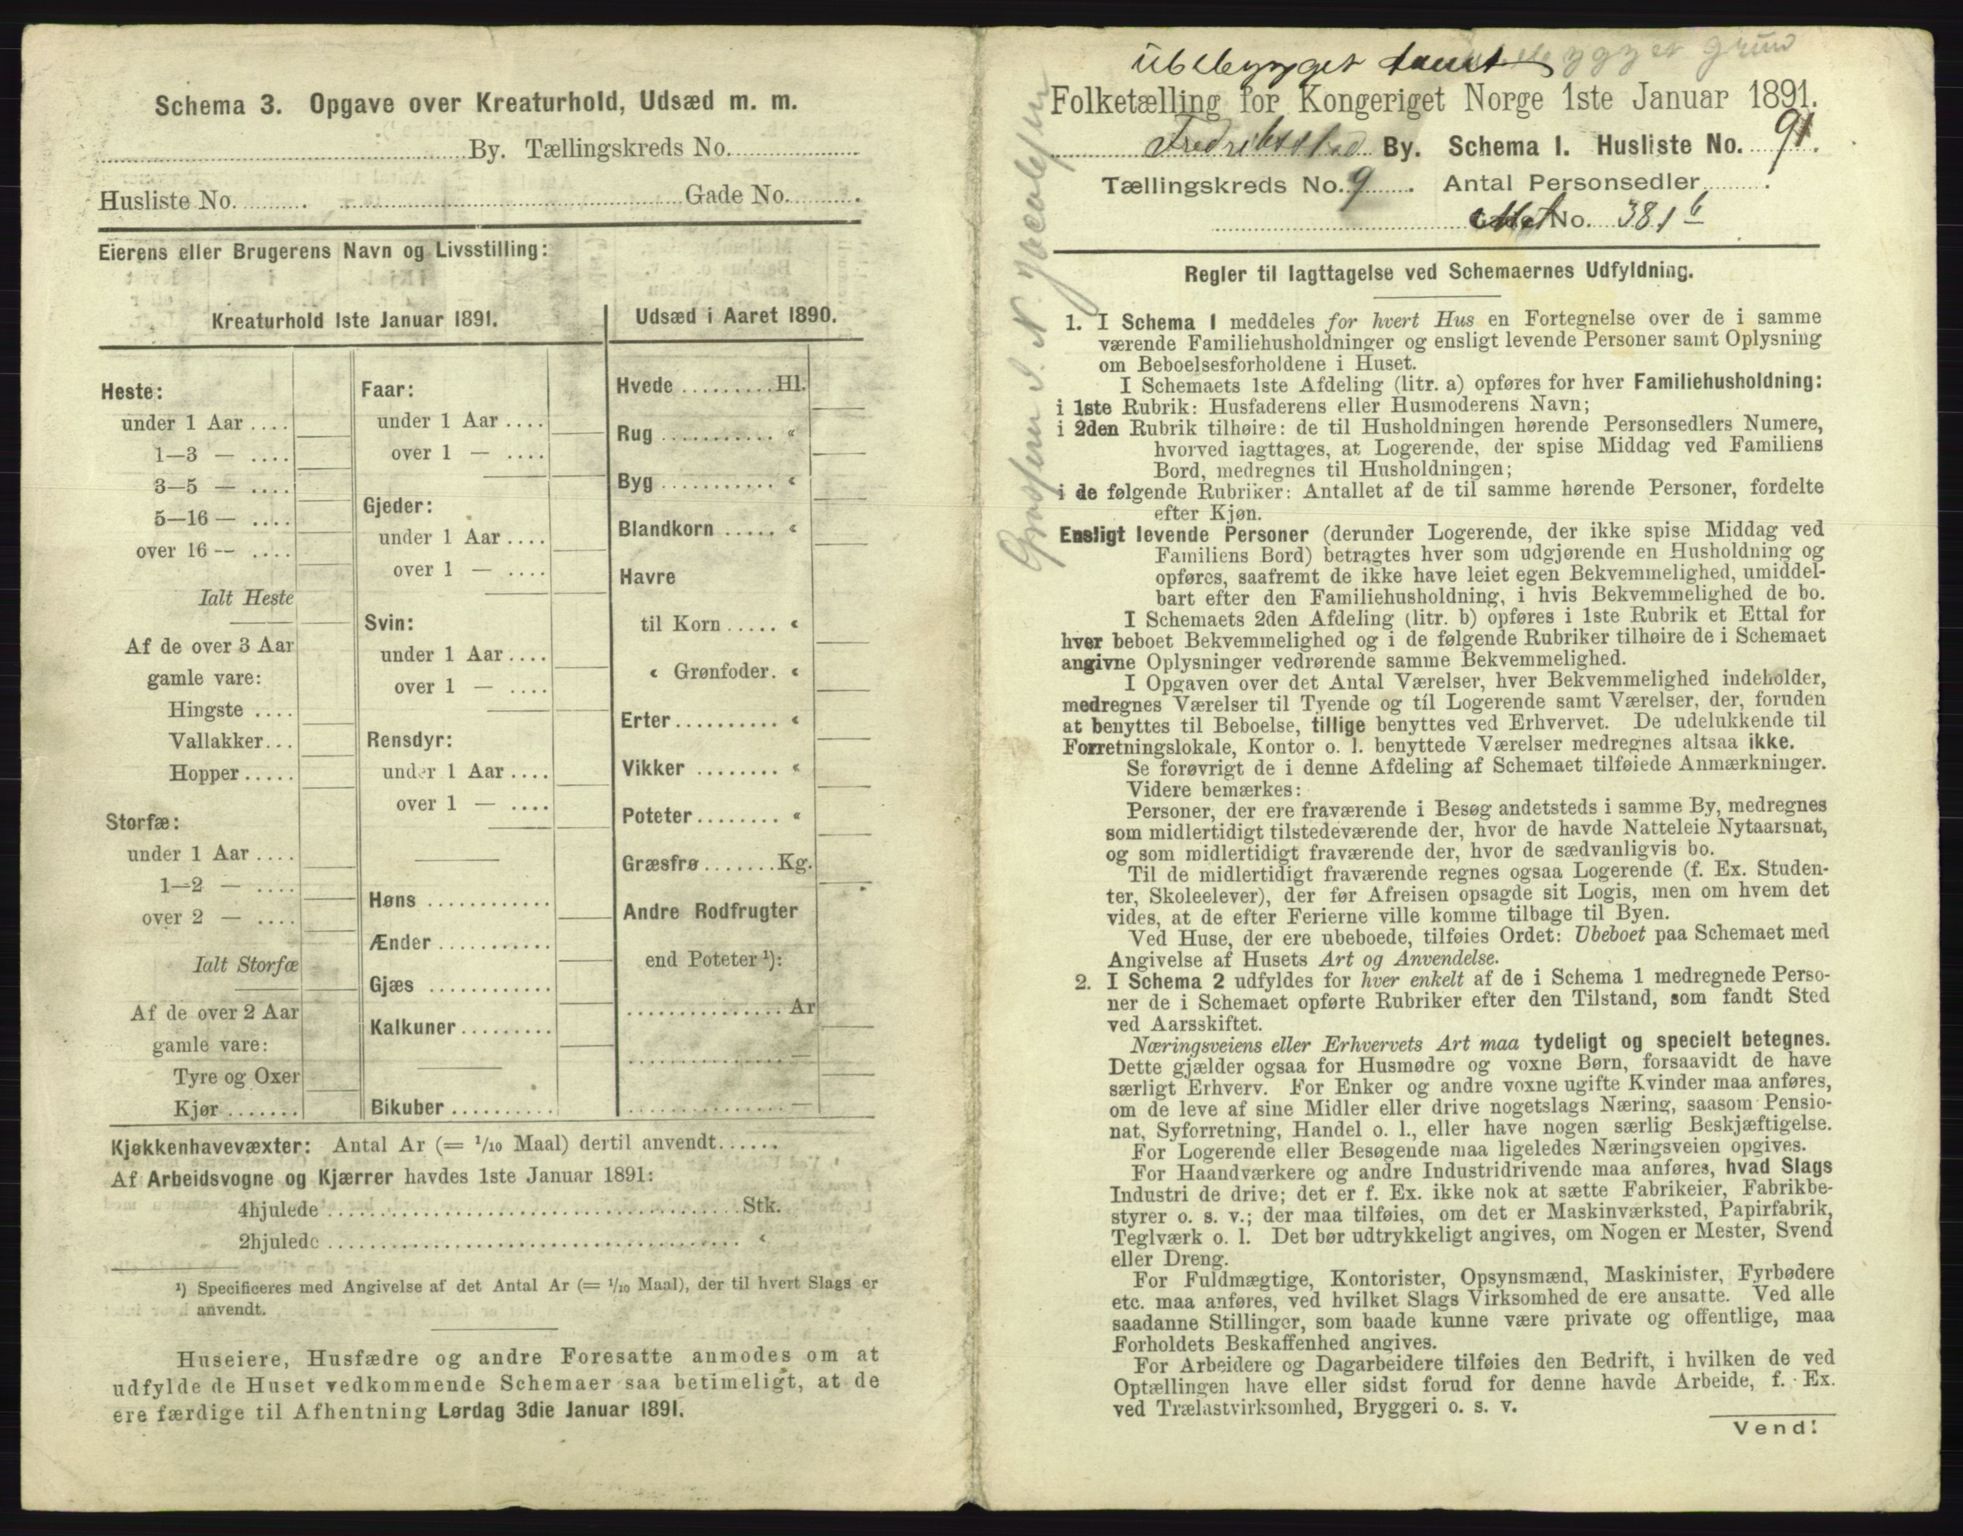 Schema 3. Opgave over Kreaturhold, Udsæd m. m.
By. Tællingskreds No.
Husliste No. Gade No.
Eierens eller Brugerens Navn og Livsstilling:
Kreaturhold 1ste Januar 1891.
Heste:
under 1 Aar
1—3 —
3—5 —
5—16 —
over 16 —
Ialt Heste
Af de over 3 Aar
gamle vare:
Hingste
Vallakker
Hopper
Storfæ:
under 1 Aar
1—2 —
over 2 —
Ialt Storfæ
Af de over 2 Aar
gamle vare:
Tyre og Oxer
Kjør
Faar:
under 1 Aar
over 1 —
Gjeder:
under 1 Aar
over 1 —
Svin:
under 1 Aar
over 1 —
Rensdyr:
under 1 Aar
over 1 —
Høns
Ænder
Gjæs
Kalkuner
Bikuber
Udsæd i Aaret 1890.
Hvede Hl.
Rug "
Byg "
Blandkorn "
Havre
til Korn "
" Grønfoder. "
Erter "
Vikker "
Poteter "
Græsfrø Kg.
Andre Rodfrugter
end Poteter ¹):
Ar
—
—
Kjøkkenhavevæxter: Antal Ar (= 1/10 Maal) dertil anvendt
Af Arbeidsvogne og Kjærrer havdes 1ste Januar 1891:
4hjulede Stk.
2hjulede "
¹) Specificeres med Angivelse af det Antal Ar (= 1/10 Maal), der til hvert Slags er
anvendt.
Huseiere, Husfædre og andre Foresatte anmodes om at
udfylde de Huset vedkommende Schemaer saa betimeligt, at de
ere færdige til Afhentning Lørdag 3die Januar 1891.
ubebygget tomt
grund
Folketælling for Kongeriget Norge 1ste Januar 1891.
Fredrikstad By. Schema 1. Husliste No. 91.
Tællingskreds No. 9. Antal Personsedler
Mat No. 381 b
Regler til Iagttagelse ved Schemaernes Udfyldning.
1. I Schema 1 meddeles for hvert Hus en Fortegnelse over de i samme
værende Familiehusholdninger og ensligt levende Personer samt Oplysning
om Beboelsesforholdene i Huset.
I Schemaets 1ste Afdeling (litr. a) opføres for hver Familiehusholdning:
i 1ste Rubrik: Husfaderens eller Husmoderens Navn;
i 2den Rubrik tilhøire: de til Husholdningen hørende Personsedlers Numere,
hvorved iagttages, at Logerende, der spise Middag ved Familiens
Bord, medregnes til Husholdningen;
i de følgende Rubriker: Antallet af de til samme hørende Personer, fordelte
efter Kjøn.
Ensligt levende Personer (derunder Logerende, der ikke spise Middag ved
Familiens Bord) betragtes hver som udgjørende en Husholdning og
opføres, saafremt de ikke have leiet egen Bekvemmelighed, umiddel-
bart efter den Familiehusholdning, i hvis Bekvemmelighed de bo.
I Schemaets 2den Afdeling (litr. b) opføres i 1ste Rubrik et Ettal for
hver beboet Bekvemmelighed og i de følgende Rubriker tilhøire de i Schemaet
angivne Oplysninger vedrørende samme Bekvemmelighed.
I Opgaven over det Antal Værelser, hver Bekvemmelighed indeholder,
medregnes Værelser til Tyende og til Logerende samt Værelser, der, foruden
at benyttes til Beboelse, tillige benyttes ved Erhvervet. De udelukkende til
Forretningslokale, Kontor o. l. benyttede Værelser medregnes altsaa ikke.
Se forøvrigt de i denne Afdeling af Schemaet tilføiede Anmærkninger.
Videre bemærkes:
Personer, der ere fraværende i Besøg andetsteds i samme By, medregnes
som midlertidigt tilstedeværende der, hvor de havde Natteleie Nytaarsnat,
og som midlertidigt fraværende der, hvor de sædvanligvis bo.
Til de midlertidigt fraværende regnes ogsaa Logerende (f. Ex. Studen-
ter, Skoleelever), der før Afreisen opsagde sit Logis, men om hvem det
vides, at de efter Ferierne ville komme tilbage til Byen.
Ved Huse, der ere ubeboede, tilføies Ordet: Ubeboet paa Schemaet med
Angivelse af Husets Art og Anvendelse.
2. I Schema 2 udfyldes for hver enkelt af de i Schema 1 medregnede Perso-
ner de i Schemaet opførte Rubriker efter den Tilstand, som fandt Sted
ved Aarsskiftet.
Næringsveiens eller Erhvervets Art maa tydeligt og specielt betegnes.
Dette gjælder ogsaa for Husmødre og voxne Børn, forsaavidt de have
særligt Erhverv. For Enker og andre voxne ugifte Kvinder maa anføres,
om de leve af sine Midler eller drive nogetslags Næring, saasom Pensio-
nat, Syforretning, Handel o. l., eller have nogen særlig Beskjæftigelse.
For Logerende eller Besøgende maa ligeledes Næringsveien opgives.
For Haandværkere og andre Industridrivende maa anføres, hvad Slags
Industri de drive; det er f. Ex. ikke nok at sætte Fabrikeier, Fabrikbe-
styrer o. s. v.; der maa tilføies, om det er Maskinværksted, Papirfabrik,
Teglværk o. l. Det bør udtrykkeligt angives, om Nogen er Mester, Svend
eller Dreng.
For Fuldmægtige, Kontorister, Opsynsmænd, Maskinister, Fyrbødere
etc. maa anføres, ved hvilket Slags Virksomhed de ere ansatte. Ved alle
saadanne Stillinger, som baade kunne være private og offentlige, maa
Forholdets Beskaffenhed angives.
For Arbeidere og Dagarbeidere tilføies den Bedrift, i hvilken de ved
Optællingen have eller sidst forud for denne havde Arbeide, f. Ex.
ved Trælastvirksomhed, Bryggeri o. s. v.
Vend!